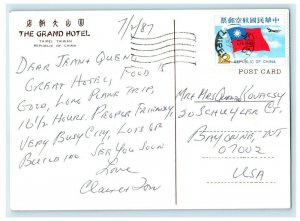 店飯大山圓
THE GRAND HOTEL
TAIPEI, TAIWAN
REPUBLIC OF CHINA
7/2/87
DEAR JEAN & QUENT
GREAT HOTEL, FOOD IS
GOOD, LONG PLANE TRIP,
16 1/2 HOURS. PEOPLE FRIENDLY
VERY BUSY CITY, LOTS OF
BUILDING SEE YOU SOON
Love
Claire & Tom
票郵空航國民中華
REPUBLIC OF CHINA
POST CARD
MR & MRS KOVACSY
20 SCHUYLER CT.
BAYONNE, NJ
07002
USA